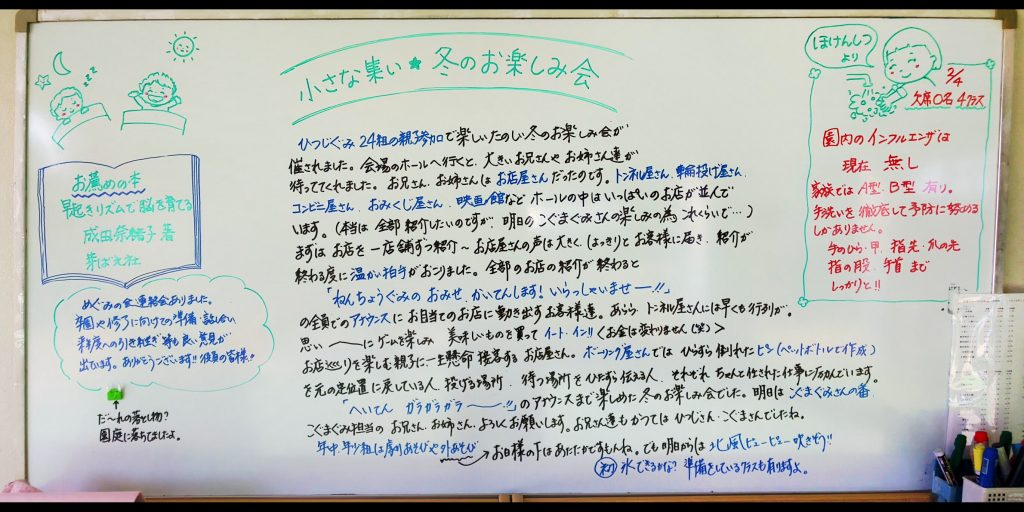 小さな集い★冬のお楽しみ会
ひつじぐみ 24組の親子参加で楽しいたのしい冬のお楽しみ会が
催されました。会場のホールへ行くと、大きいお兄さんやお姉さん達が
待っててくれました。お兄さん、お姉さんはお店屋さんだったのです。トンネル屋さん、輪投げ屋さん、
コンビニ屋さん、おみくじ屋さん、映画館などホールの中はいっぱいのお店が並んで
います。(本当は全部紹介したいのですが、明日のこぐまぐみさんの楽しみの為これくらいで…)
まずはお店を一店舗ずつ紹介〜お店屋さんの声は大きく、はっきりとお客様に届き、紹介が
終わる度に温かい拍手がおこりました。全部のお店の紹介が終わると
「ねんちょうぐみの おみせ、かいてんします!いらっしゃいませー!!」
の全員でのアナウンスにお目当てのお店に動き出すお客様達。あらら トンネル屋さんには早くも行列が。
思い〜にゲームを楽しみ 美味しいものを買ってイート・イン!!<お金は変わりません(笑)>
お店巡りを楽しむ親子に一生懸命接客するお店屋さん。ボーリング屋さんでは ひたすら倒れたピン(ペットボトルで作成)
を元の定位置に戻している人、投げる場所、待つ場所をひたすら伝える人、それぞれ ちゃんと任された仕事に励んでいます。
「へいてん ガラガラガラ〜!!」のアナウンスまで楽しめた冬のお楽しみ会でした。明日はこぐまぐみさんの番、
こぐまぐみ担当のお兄さん、お姉さん、よろしくお願いします。お兄さん達もかつてはひつじさん・こぐまさんでしたね。
年中、年少組は房りあそびや外あそび → お日様の下はあたたかですもんね。でも明日からは北風ピューピュー吹きそう!!
初 氷できるかな?準備をしているクラスも有りますよ。
お薦めの本
早起きリズムで脳を育てる
成田奈緒子 著
芽ばえ社
めぐみの会連絡会ありました。
卒園や修了に向けての準備・話し合い
来年度への引き継ぎ等も良い意見が
出ています。ありがとうございます!!役員の皆様!!
だ〜れの落とし物?
園庭に落ちてましたよ。
zzz
ほけんしつ
より
2/4
欠席0名 4クラス
園内のインフルエンザは
現在 無し
家族ではA型・B型 有り。
手洗いを徹底して予防に努める
しかありません。
手のひら・甲、指先・爪の先
指の股、手首まで
しっかりと!!